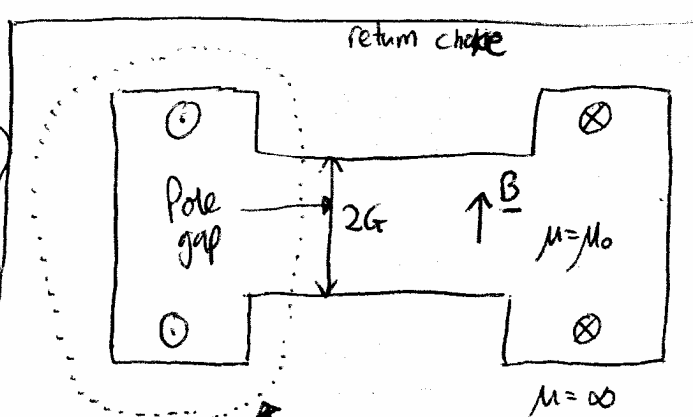 return choke
Pole
gap
2G
B
μ=μ₀
μ=∞